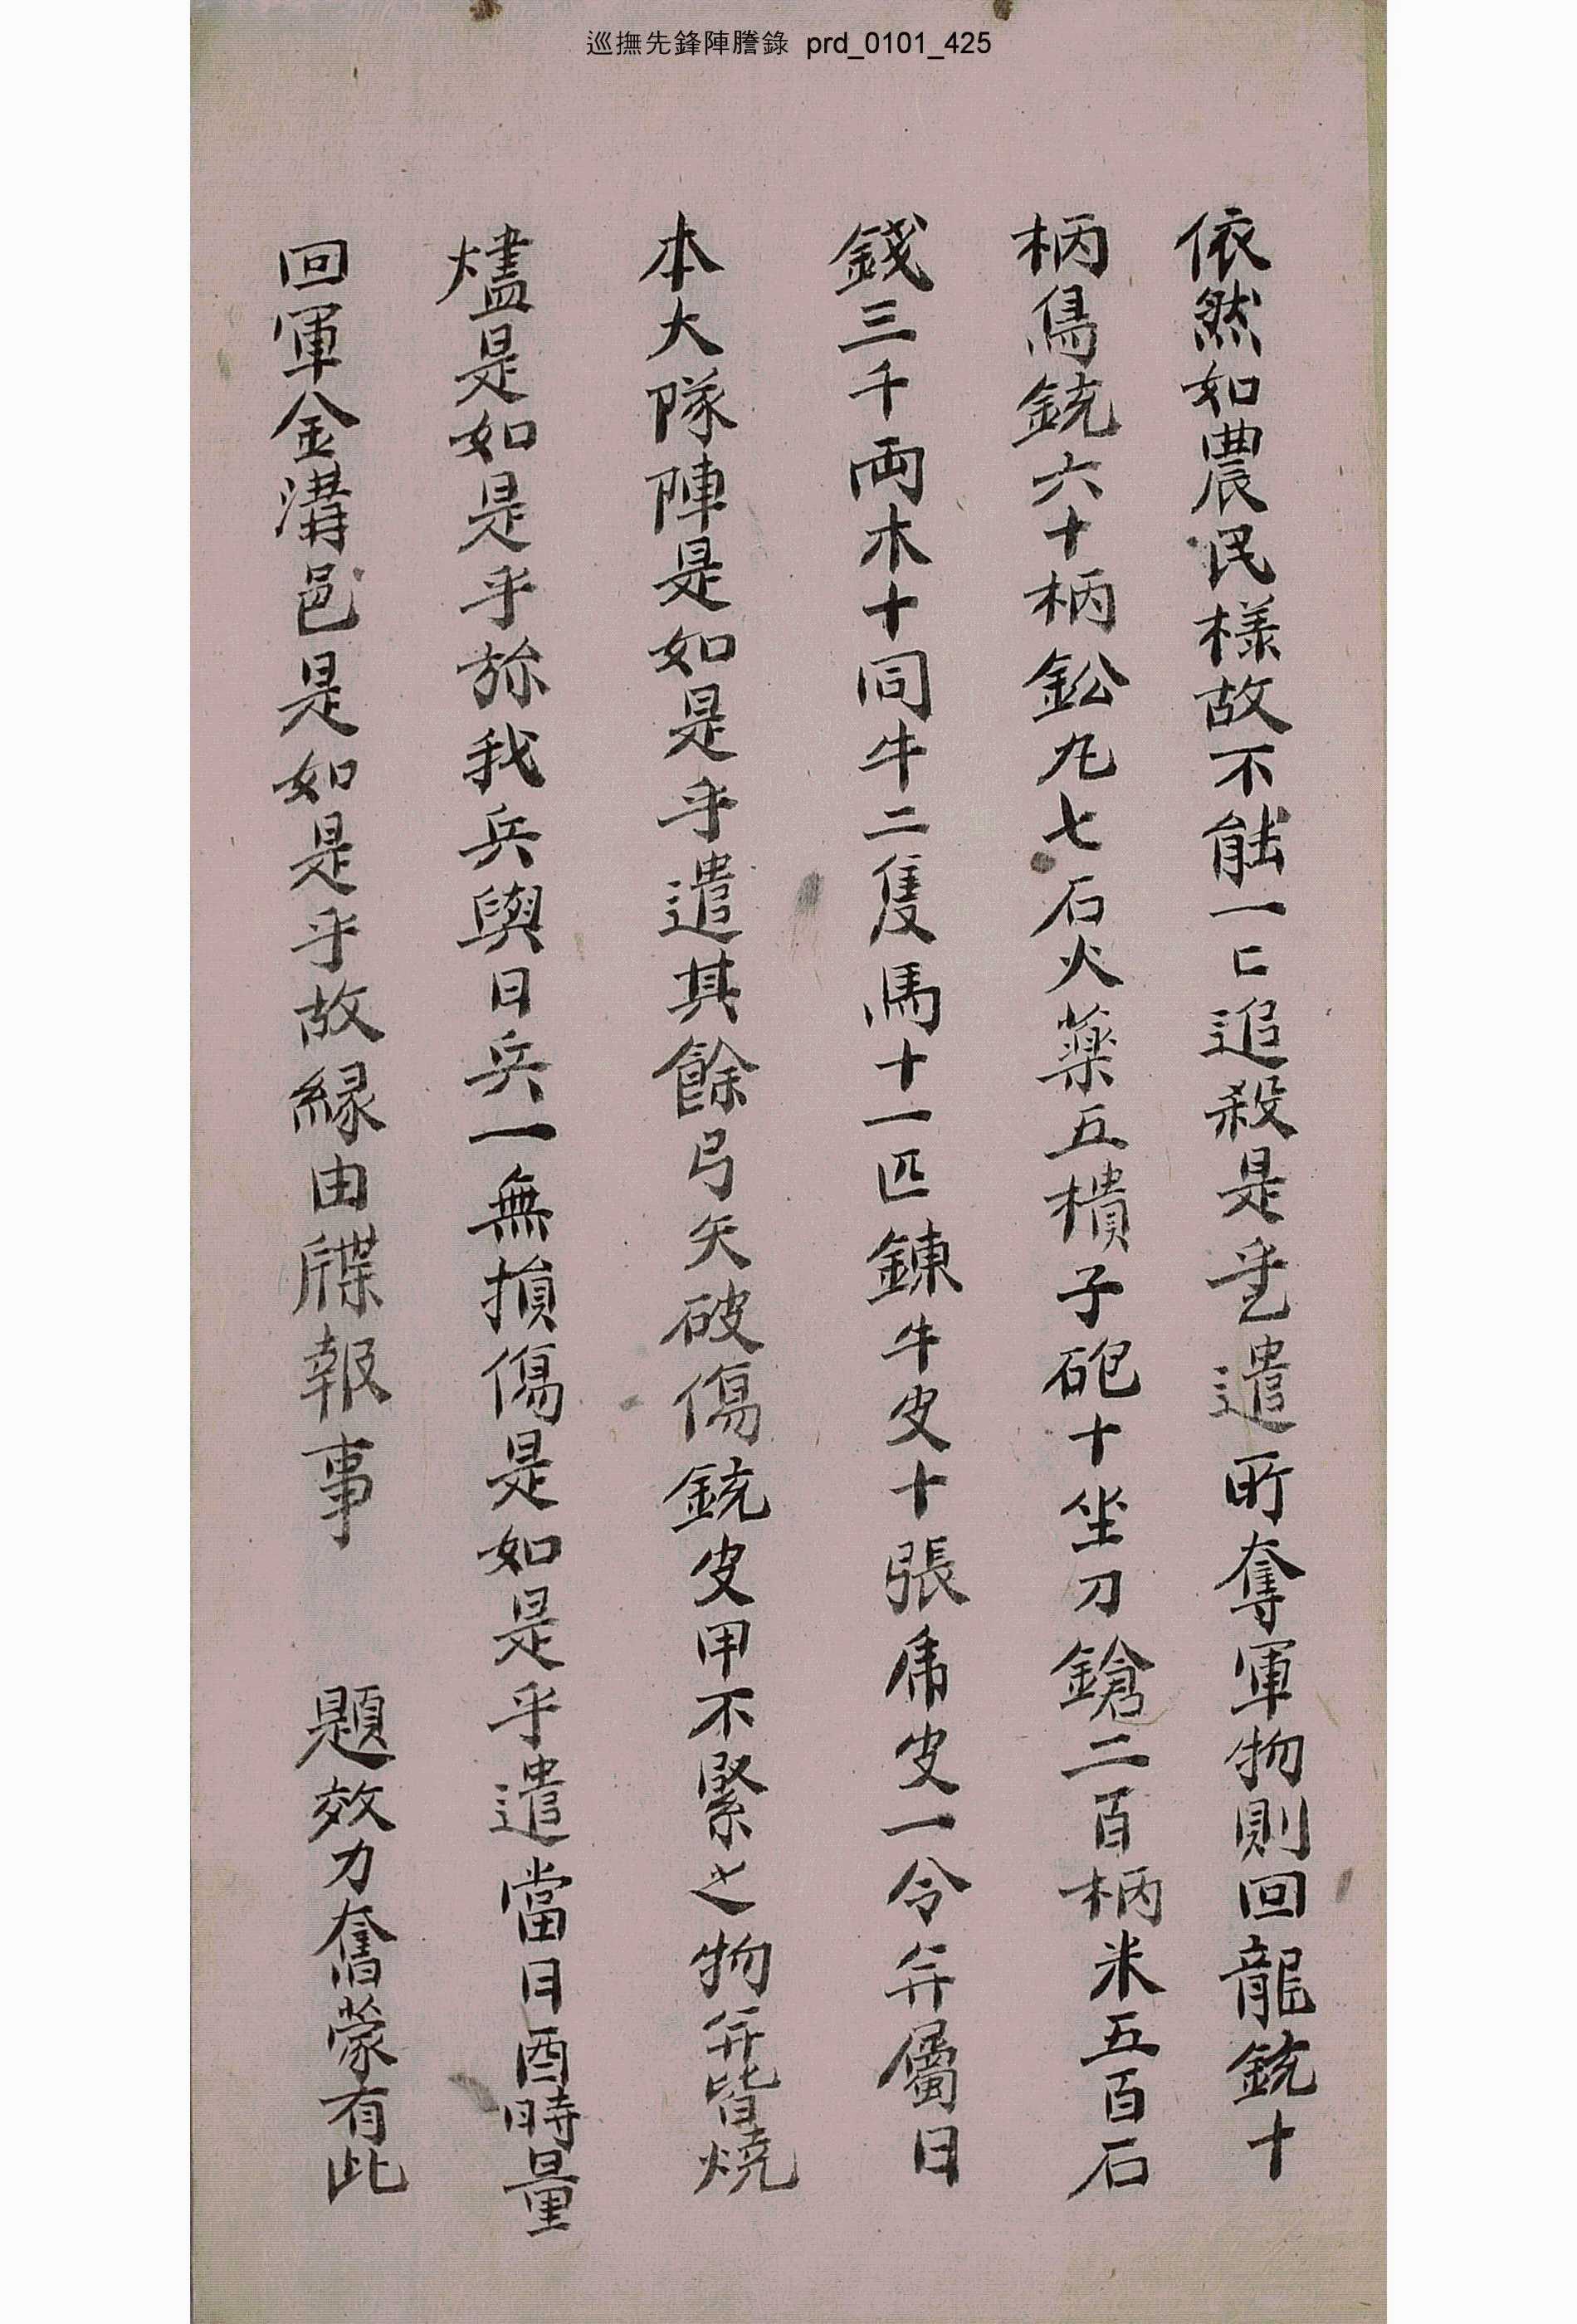 巡撫先鋒陣謄錄 prd_0101_425
依然如農民樣故不能一匕追殺是乎㫆遣所奪軍物則回龍銃十
柄鳥銃六十柄鈆丸七石火藥五樻子砲十坐刀鎗二百柄米五百石
錢三千両木十同牛二隻馬十一匹鍊牛皮十張乕皮一令幷屬日
本大隊陣是如是乎遣其餘弓矢破傷銃皮甲不緊之物幷皆燒
燼是如是乎旀我兵與日兵一無損傷是如是乎遣當日酉時量
回軍金溝邑是如是乎故緣由牒報事 題效力奮蒙有此